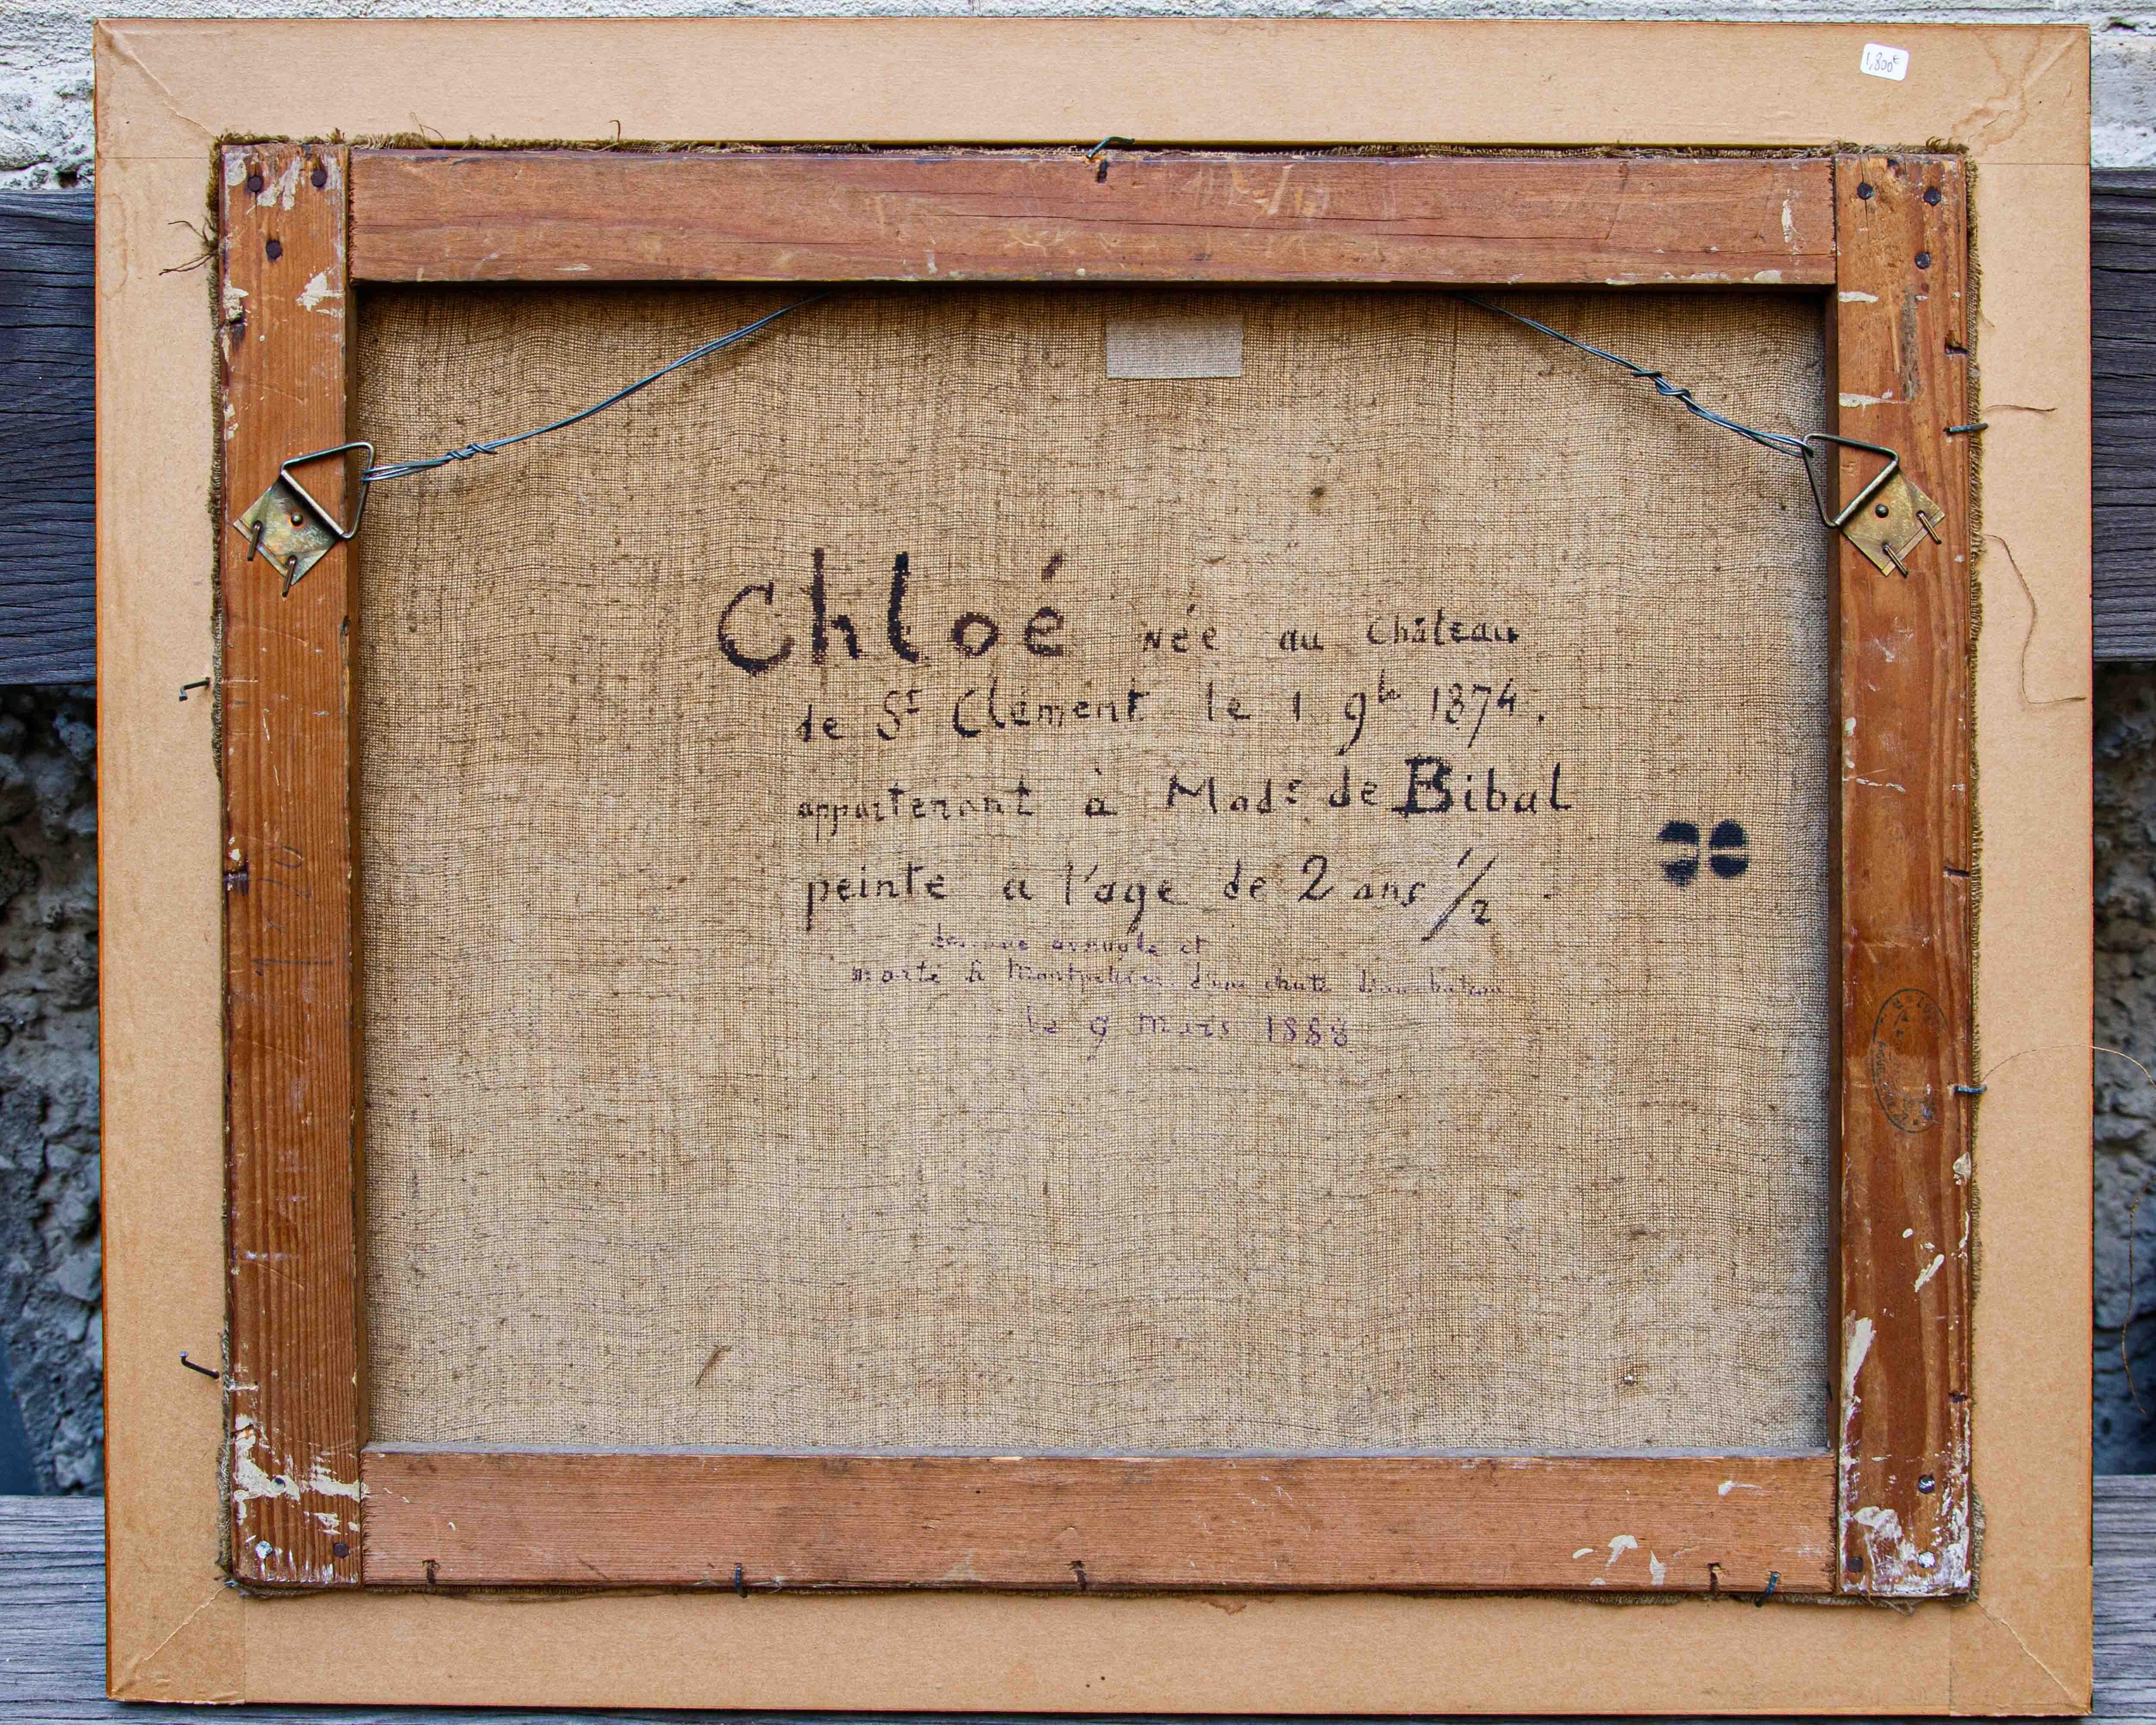 1,800€
Chloé née au Château
de St Clément le 1 9bre 1874.
appartenant à Made de Bibal
peinte a l'age de 2 ans 1/2
devenue aveugle et
morte à Montpellier d'une chute d'un balcon
le 9 mars 1888